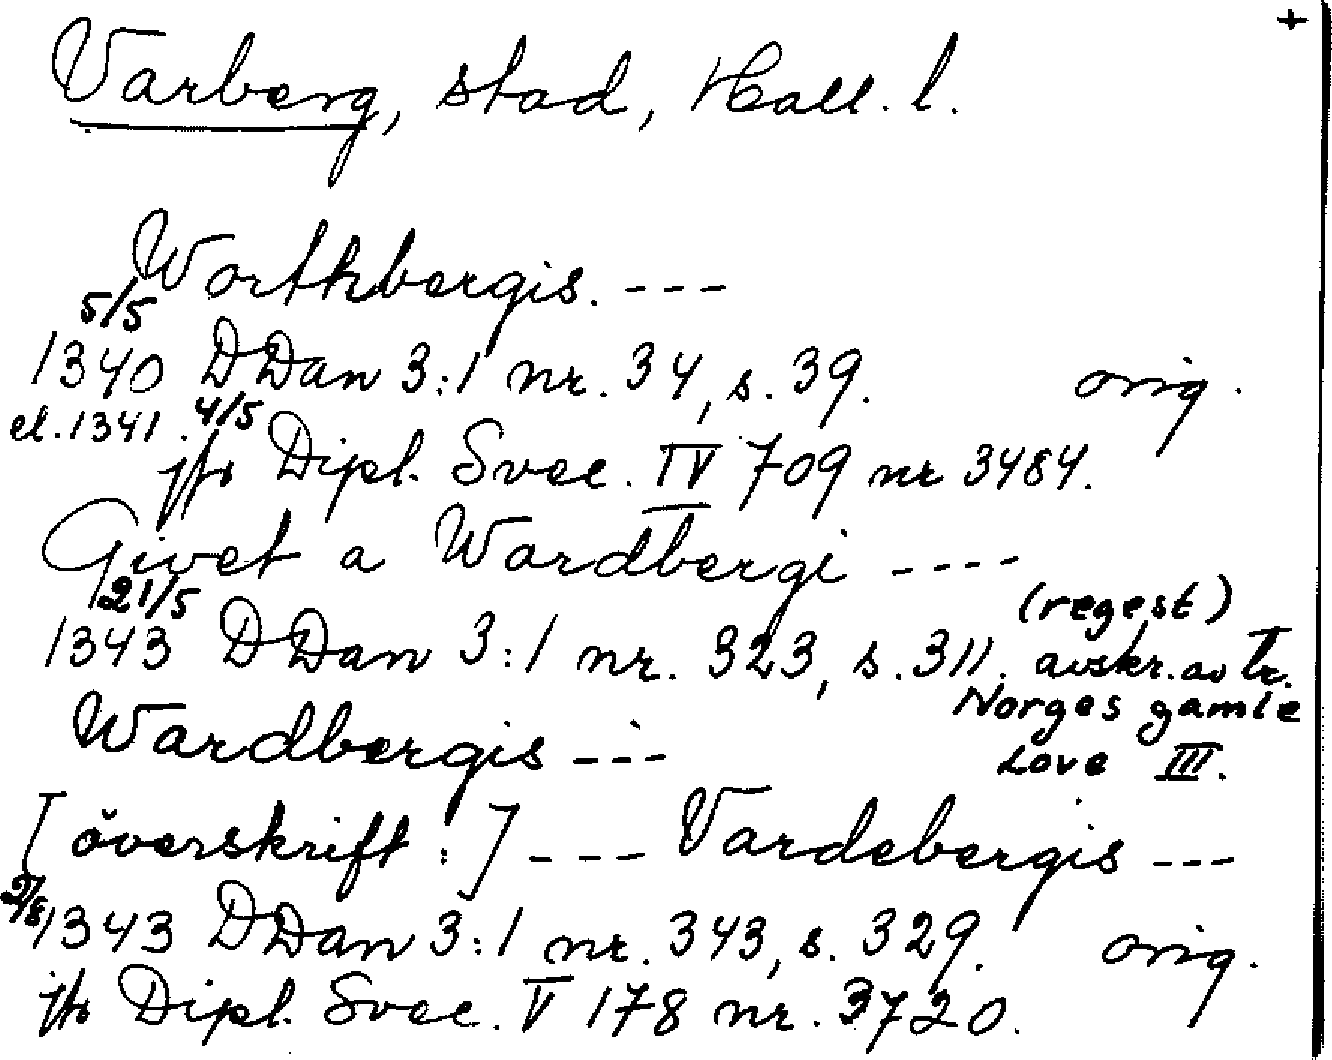 +
Varberg, stad, Hall. l.
Worthbergis. ---
5/5
1340 DDan 3:1 nr. 34, s. 39. orig.
el. 1341 4/5
jfr Dipl. Svec. IV 709 nr 3484.
Givet a Wardbergi ----
21/5 (regest)
1343 DDan 3:1 nr. 323, s. 311. avskr. av tr.
Norges gamle
Wardbergis ---
Love III.
[överskrift:] --- Vardebergis ---
2/8 1343 DDan 3:1 nr. 343, s. 329. orig.
jfr Dipl. Svec. V 178 nr. 3720.